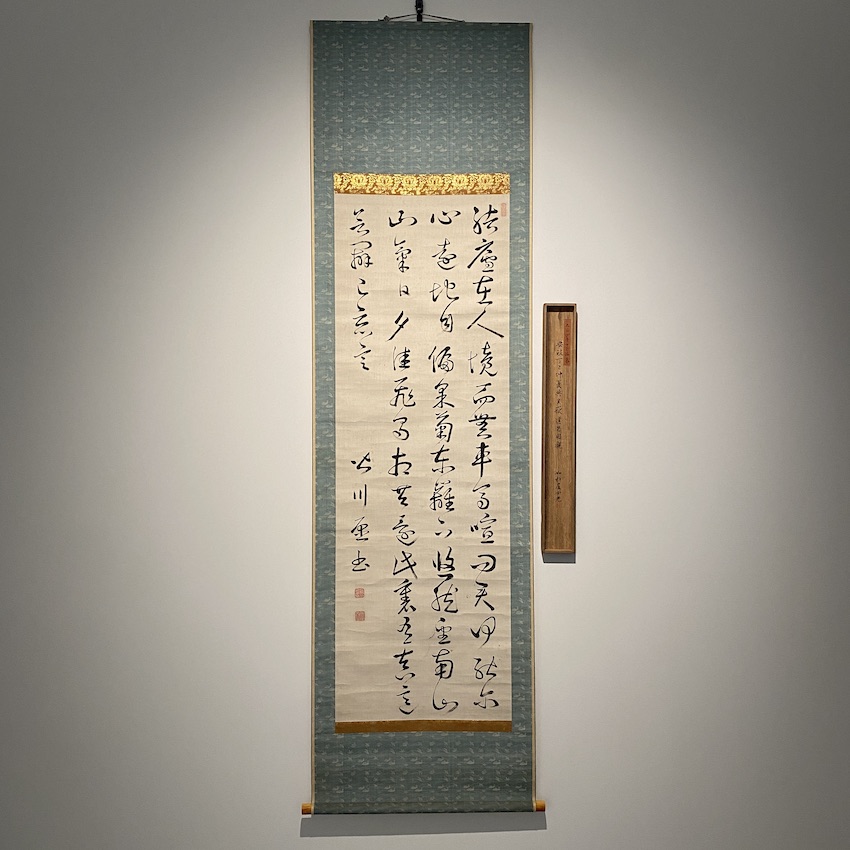 結廬在人境而無車馬喧問君何能尔
心遠地自偏采菊東籬下悠然望南山
山氣日夕佳飛鳥相與還此裏有真意
欲辯已忘言
皆川愿書